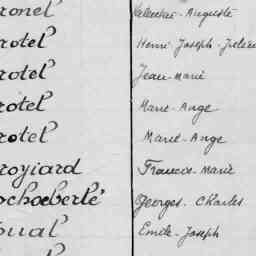 ronel Valentin-Auguste
rotel Henri-Joseph-Julien
rotel Jean-Marie
rotel Marie-Ange
rotel Marie-Ange
royiard Francis-Marie
ochoeberlé Georges-Charles
oual Emile-Joseph